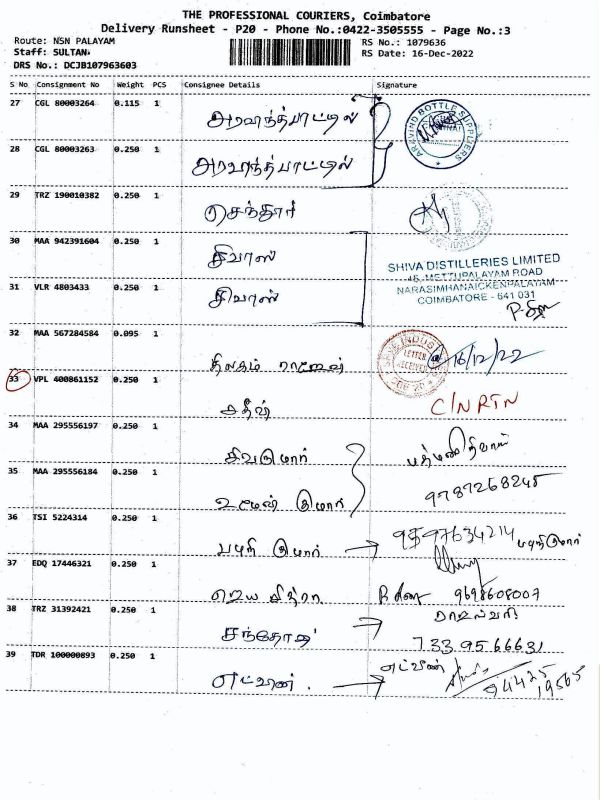 THE PROFESSIONAL COURIERS, Coimbatore
Delivery Runsheet - P20 - Phone No.:0422-3505555 - Page No.:3
Route: NSN PALAYAM RS No.: 1079636
Staff: SULTAN. RS Date: 16-Dec-2022
DRS No.: DCJB107963603
S No Consignment No Weight PCS Consignee Details Signature
27 CGL 80003264 0.115 1 அரவிந்த்பாட்டில்
ARVIND BOTTLE SUPPLIERS
28 CGL 80003263 0.250 1 அரவிந்த்பாட்டில்
29 TRZ 190010382 0.250 1 செந்தூர்
30 MAA 942391604 0.250 1 சிவாஸ்
SHIVA DISTILLERIES LIMITED
46, METTUPALAYAM ROAD
31 VLR 4803433 0.250 1 சிவாஸ்
NARASIMHANAICKENPALAYAM
COIMBATORE - 641 031
32 MAA 567284584 0.095 1 திலகம்
LETTER RECEIVED
16/12/22
33 VPL 400861152 0.250 1 சதீஷ் C/N RTN
34 MAA 295556197 0.250 1 சிவகுமார்
35 MAA 295556184 0.250 1 குமார் 9787268245
36 TSI 5224314 0.250 1 பழனி குமார் → 9597634214 பழனிகுமார்
37 EDQ 17446321 0.250 1 ஜெய சித்ரா 9698608007
38 TRZ 31392421 0.250 1 சந்தோஷ் → 733 95 66631
39 TDR 100000893 0.250 1 எட்வின் . → எட்வின் 94425 19565